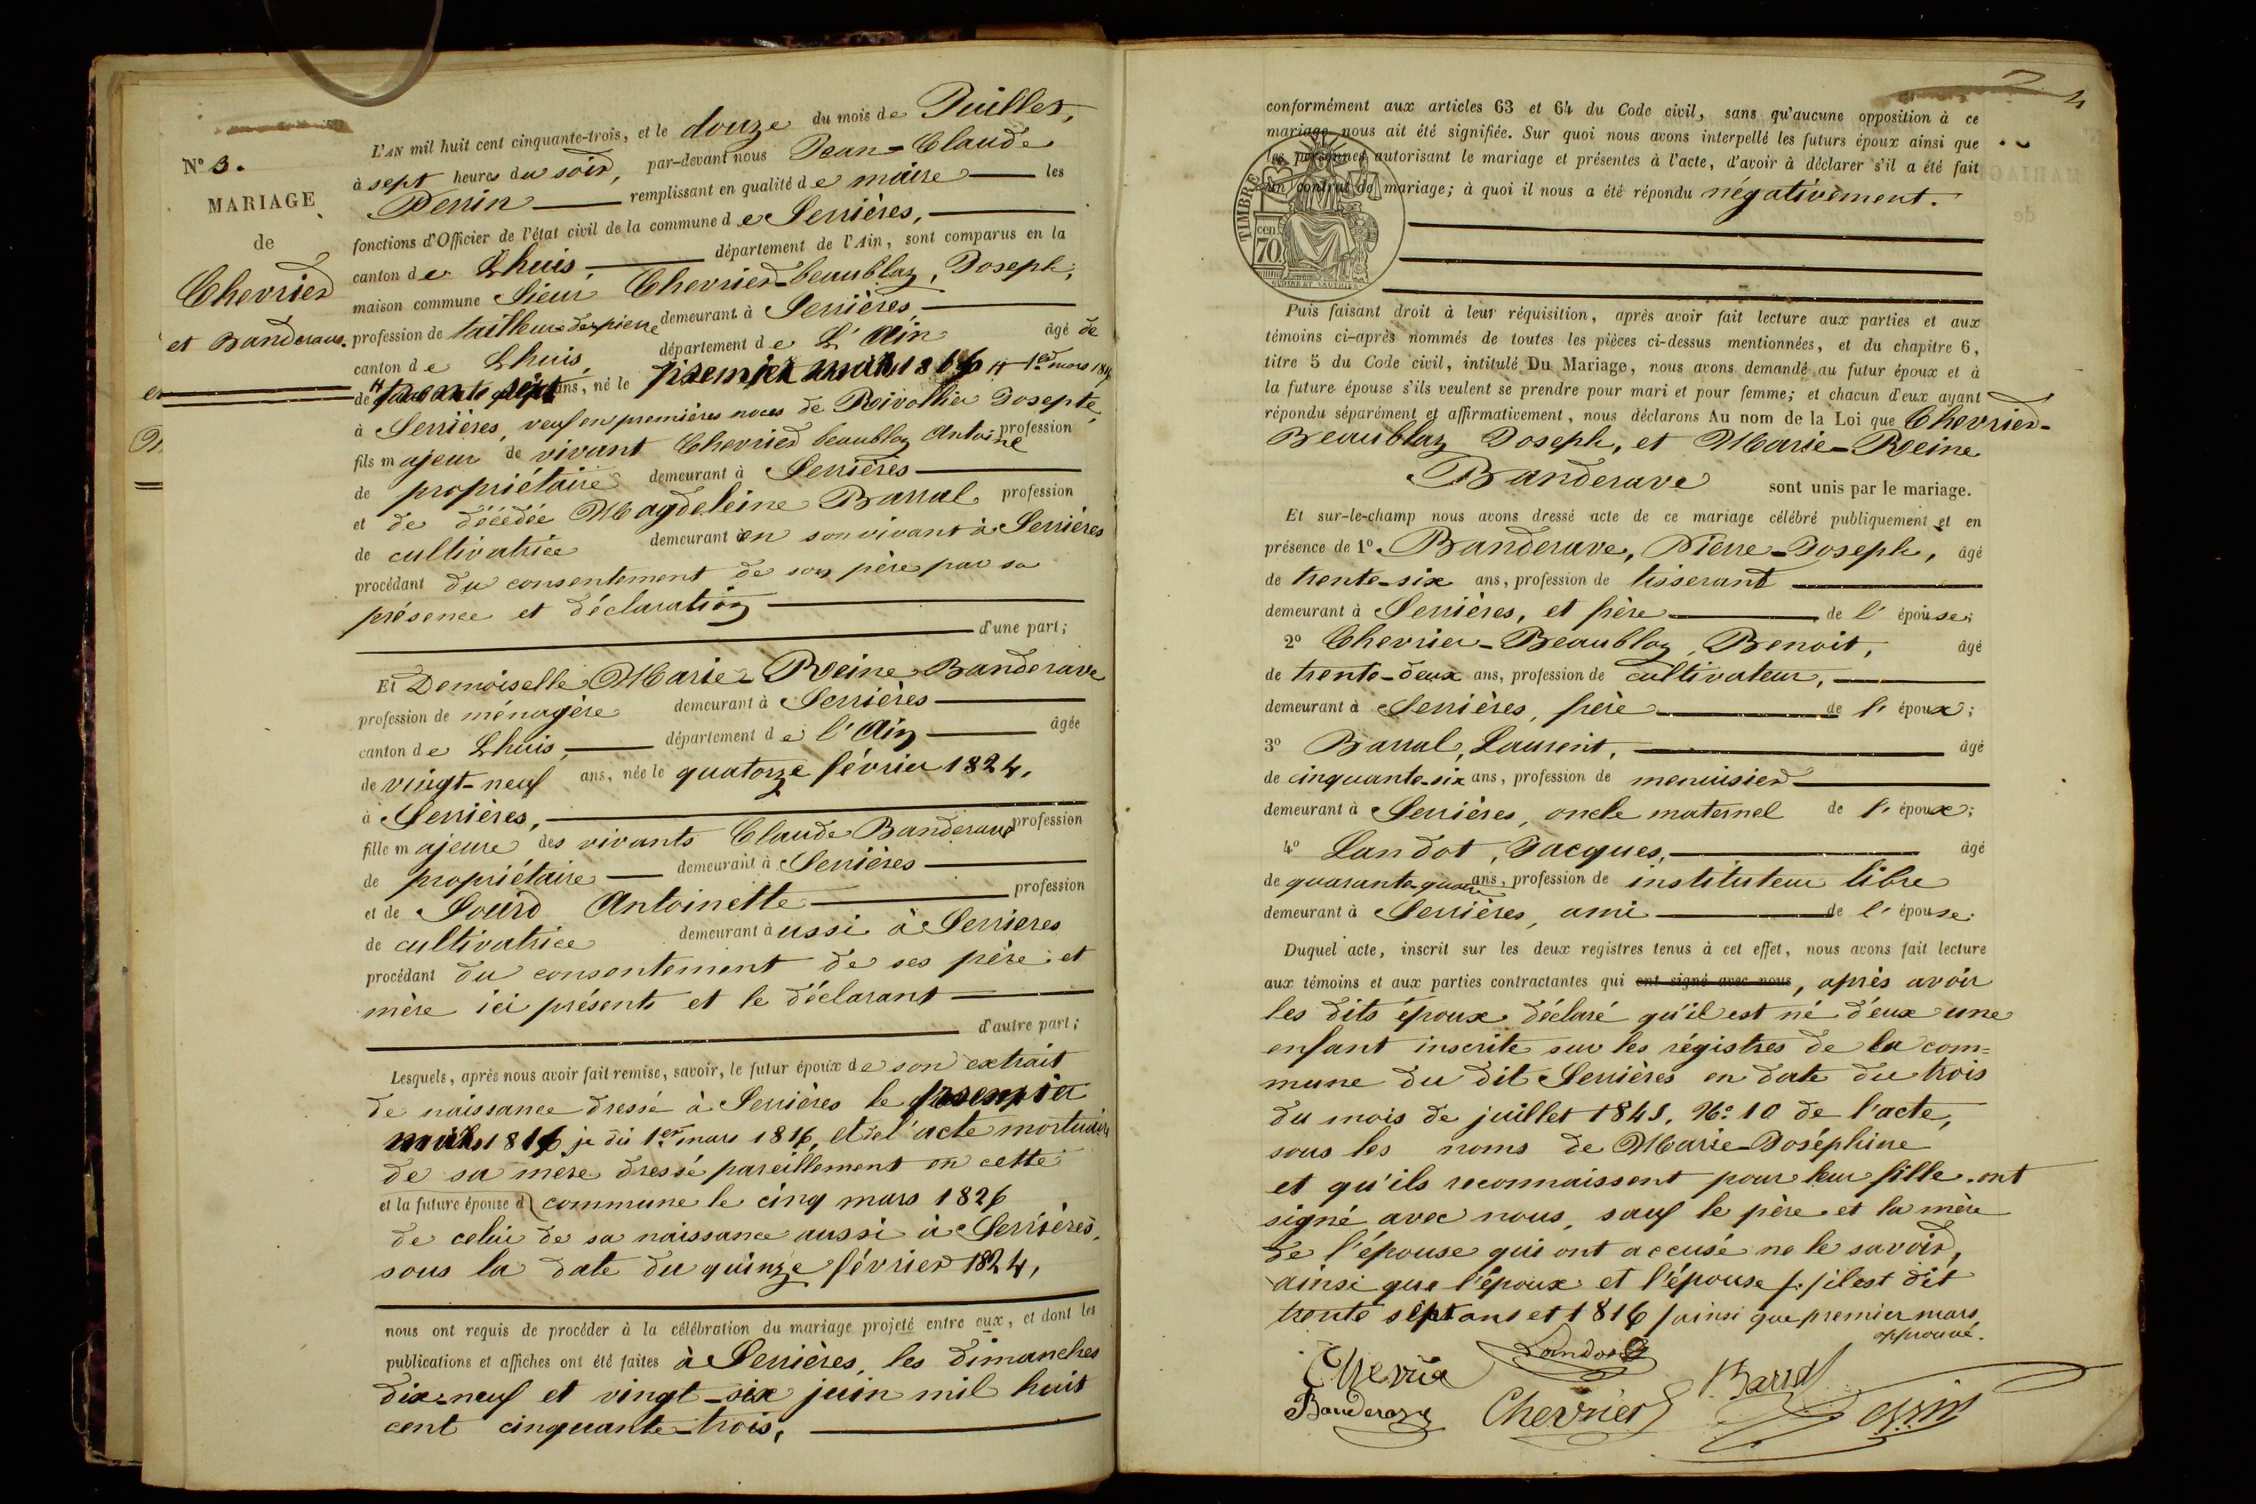 N° 3.
MARIAGE
de
Chevrier
et Banderave.
L'AN mil huit cent cinquante-trois, et le douze du mois de Juillet,
à sept heures du soir, par-devant nous Jean-Claude
Perrin remplissant en qualité de maire les
fonctions d'Officier de l'état civil de la commune de Serrières,
canton de Lhuis, département de l'Ain, sont comparus en la
maison commune Sieur Chevrier-beaublaz, Joseph,
profession de tailleur de pierre demeurant à Serrières,
canton de Lhuis, département de L'Ain âgé de
de ans, né le premier mars 1816 1er mars
à Serrières, veuf en premières noces de Josepte,
fils majeur de vivant Chevrier beaublaz Antoine profession
de propriétaire demeurant à Serrières
et de décédée Magdeleine Barral profession
de cultivatrice demeurant en son vivant à Serrières
procédant du consentement de son père par sa
présence et déclaration
d'une part;
Et Demoiselle Marie-Reine Banderave
profession de ménagère demeurant à Serrières
canton de Lhuis, département de l'Ain âgée
de vingt-neuf ans, née le quatorze février 1824,
à Serrières,
fille majeure des vivants Claude Banderave profession
de propriétaire demeurant à Serrières
et de Sourd Antoinette profession
de cultivatrice demeurant aussi à Serrieres
procédant du consentement de ses père et
mère ici présents et le déclarant
d'autre part;
Lesquels, après nous avoir fait remise, savoir, le futur époux de son extrait
de naissance dressé à Serrières le premier
mars 1816 je dis 1er mars 1816, et de l'acte mortuaire
de sa mere dressé pareillement en cette
et la future épouse d commune le cinq mars 1826
de celui de sa naissance aussi à Serrières,
sous la date du quinze février 1824,
nous ont requis de procéder à la célébration du mariage projeté entre eux, et dont les
publications et affiches ont été faites à Serrières, les dimanches
dix-neuf et vingt-six juin mil huit
cent cinquante-trois,
conformément aux articles 63 et 64 du Code civil, sans qu'aucune opposition à ce
mariage nous ait été signifiée. Sur quoi nous avons interpellé les futurs époux ainsi que
les personnes autorisant le mariage et présentes à l'acte, d'avoir à déclarer s'il a été fait
un contrat de mariage; à quoi il nous a été répondu négativement.
TIMBRE
70 cen
Puis faisant droit à leur réquisition, après avoir fait lecture aux parties et aux
témoins ci-après nommés de toutes les pièces ci-dessus mentionnées, et du chapitre 6,
titre 5 du Code civil, intitulé Du Mariage, nous avons demandé au futur époux et à
la future épouse s'ils veulent se prendre pour mari et pour femme; et chacun d'eux ayant
répondu séparément et affirmativement, nous déclarons Au nom de la Loi que Chevrier-
Beaublaz Joseph, et Marie-Reine
Banderave sont unis par le mariage.
Et sur-le-champ nous avons dressé acte de ce mariage célébré publiquement et en
présence de 1° Banderave, Pierre-Joseph, âgé
de trente-six ans, profession de tisserant
demeurant à Serrières, et frère de l'épouse;
2° Chevrier-Beaublaz, Benoit, âgé
de trente-deux ans, profession de cultivateur,
demeurant à Serrières, frère de l'époux;
3° Barral, Laurent, âgé
de cinquante-six ans, profession de menuisier
demeurant à Serrières, oncle maternel de l'époux;
4° Landot, Jacques, âgé
de quarante-quatre ans, profession de instituteur libre
demeurant à Serrières, ami de l'épouse.
Duquel acte, inscrit sur les deux registres tenus à cet effet, nous avons fait lecture
aux témoins et aux parties contractantes qui ont signé avec nous, après avoir
les dits époux déclaré qu'il est né d'eux une
enfant inscrite sur les régistres de la com=
mune du dit Serrières en date du trois
du mois de juillet 1845, N° 10 de l'acte,
sous les noms de Marie-Joséphine
et qu'ils reconnaissent pour leur fille. ont
signé avec nous, sauf le père et la mère
de l'épouse qui ont accusé ne le savoir,
ainsi que l'époux et l'épouse il est dit
trente sept ans et 1816 ainsi que premier mars
approuvé.
Landot
Chevrier
Barral
Banderave
Chevrier
Perrin